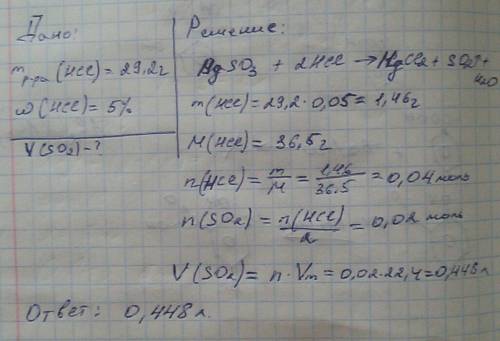 Дано:
m р-ра (HCl) = 29,2г
ω (HCl) = 5%
V(SO₂) - ?
Решение:
MgSO₃ + 2HCl → MgCl₂ + SO₂↑ +
H₂O
m(HCl) = 29,2 · 0,05 = 1,46г
M(HCl) = 36,5г
n(HCl) = m/M = 1,46/36.5 = 0,04 моль
n(SO₂) = n(HCl)/2 = 0,02 моль
V(SO₂) = n · Vm = 0,02·22,4 = 0,448л
Ответ: 0,448 л.